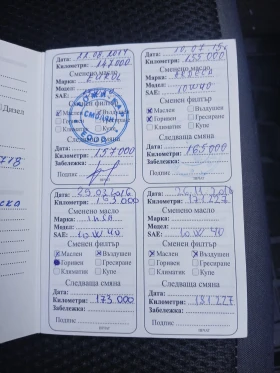 Дизел
718
ска
Дата: 22.08.2014
Километри: 147.000
Сменено масло
Марка:
Модел:
SAE:
Сменен филтър
Маслен Въздушен
Горивен
Климатик Купе
Следваща смяна
Километри: 157000
Забележка:
Подпис
Дата: 10.07.15
Километри: 155000
Сменено масло
Марка:
Модел:
SAE: 10W40
Сменен филтър
Маслен Въздушен
Горивен Гресиране
Климатик Купе
Следваща смяна
Километри: 165000
Забележка:
Подпис
Дата: 29.03.2016
Километри: 163000
Сменено масло
Марка:
Модел:
SAE: 10W40
Сменен филтър
Маслен Въздушен
Горивен Гресиране
Климатик Купе
Следваща смяна
Километри: 173.000
Забележка:
Подпис
Дата: 26.11.2016
Километри: 171.227
Сменено масло
Марка:
Модел:
SAE: 10W40
Сменен филтър
Маслен Въздушен
Горивен Гресиране
Климатик Купе
Следваща смяна
Километри: 181.227
Забележка:
Подпис